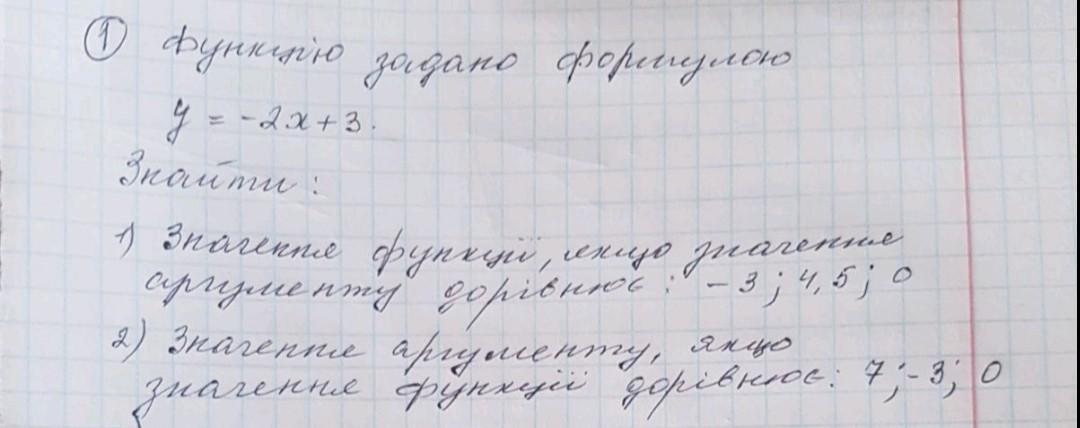 ① Функцію задано формулою
y = -2x + 3.
Знайти:
1) Значення функції, якщо значення
аргументу дорівнює: -3; 4,5; 0
2) Значення аргументу, якщо
значення функції дорівнює: 7; -3; 0